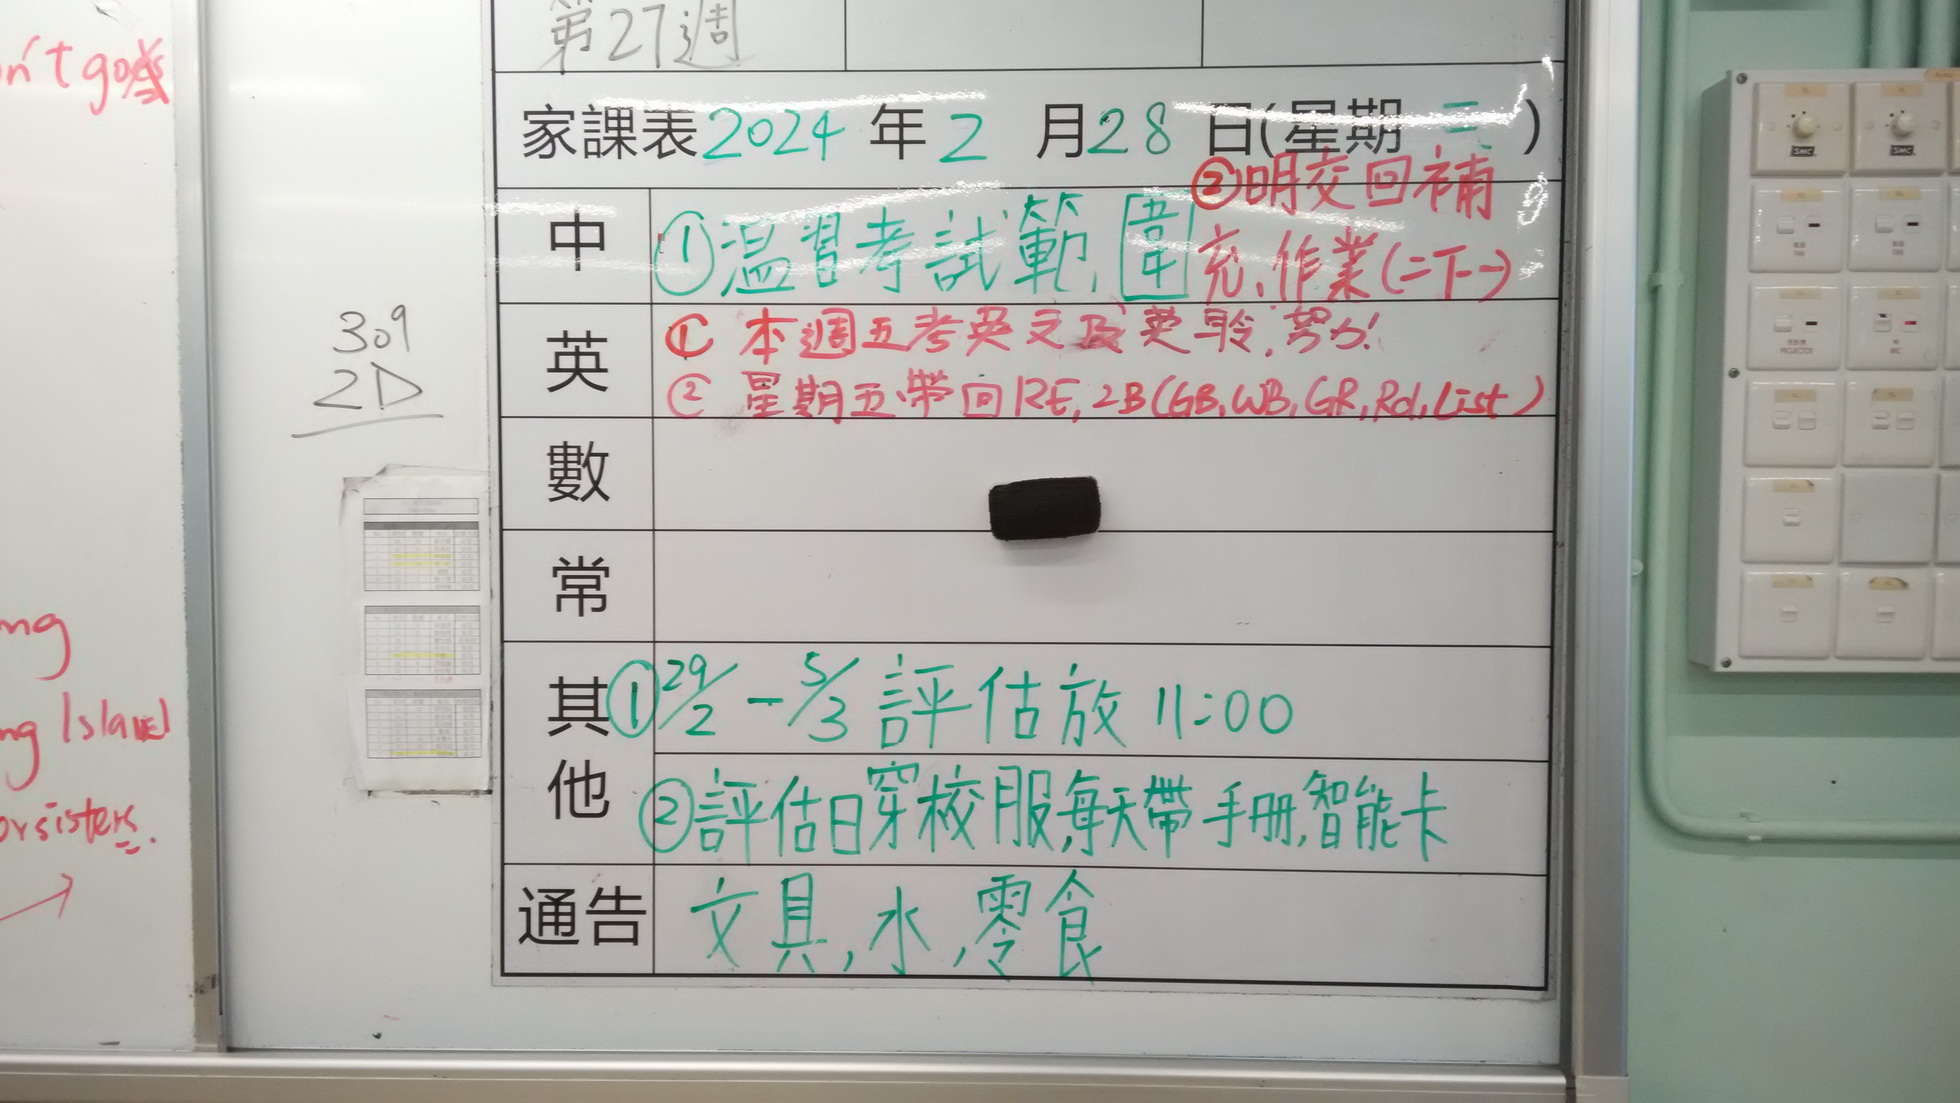 n't goes
ng
ng Island
or sisters.
309
2D
第27週
家課表 2024 年 2 月 28 日(星期 三 )
中 ①温習考試範圍
②明交回補
充作業(二下一)
英 ① 本週五考英文及英聆,努力!
② 星期五帶回RE, 2B(GB, WB, GR, Rd, List)
數
常
其他 ① 29/2 - 5/3 評估放 11:00
②評估日穿校服,每天帶手冊,智能卡
通告 文具,水,零食
SMC
SMC
PROJECTOR
MIC